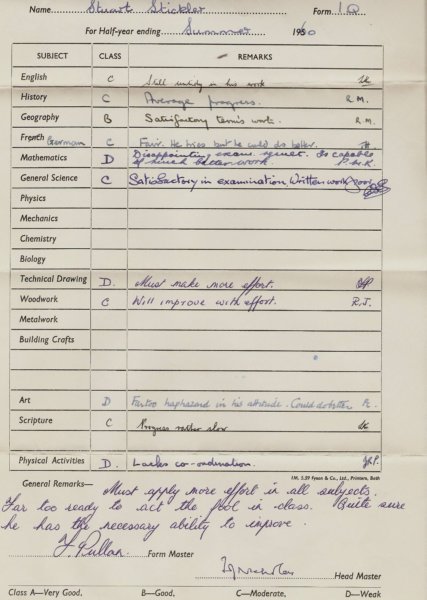 Name Stuart Stickler Form 1Q
For Half-year ending Summer 1960
SUBJECT CLASS REMARKS
English C Still untidy in his work
History C Average progress. R.M.
Geography B Satisfactory term's work. R.M.
French German C Fair. He tries but he could do better.
Mathematics D Disappointing exam. result. Is capable
of much better work. P.H.R.
General Science C Satisfactory in examination. Written work poor
Physics
Mechanics
Chemistry
Biology
Technical Drawing D. Must make more effort.
Woodwork C Will improve with effort. R.J.
Metalwork
Building Crafts
Art D Far too haphazard in his attitude. Could do better
Scripture C Progress rather slow
Physical Activities D. Lacks co-ordination.
IM, 5.59 Fyson & Co., Ltd., Printers, Bath
General Remarks— Must apply more effort in all subjects.
Far too ready to act the fool in class. Quite sure
he has the necessary ability to improve.
Form Master
Head Master
Class A—Very Good. B—Good. C—Moderate. D—Weak